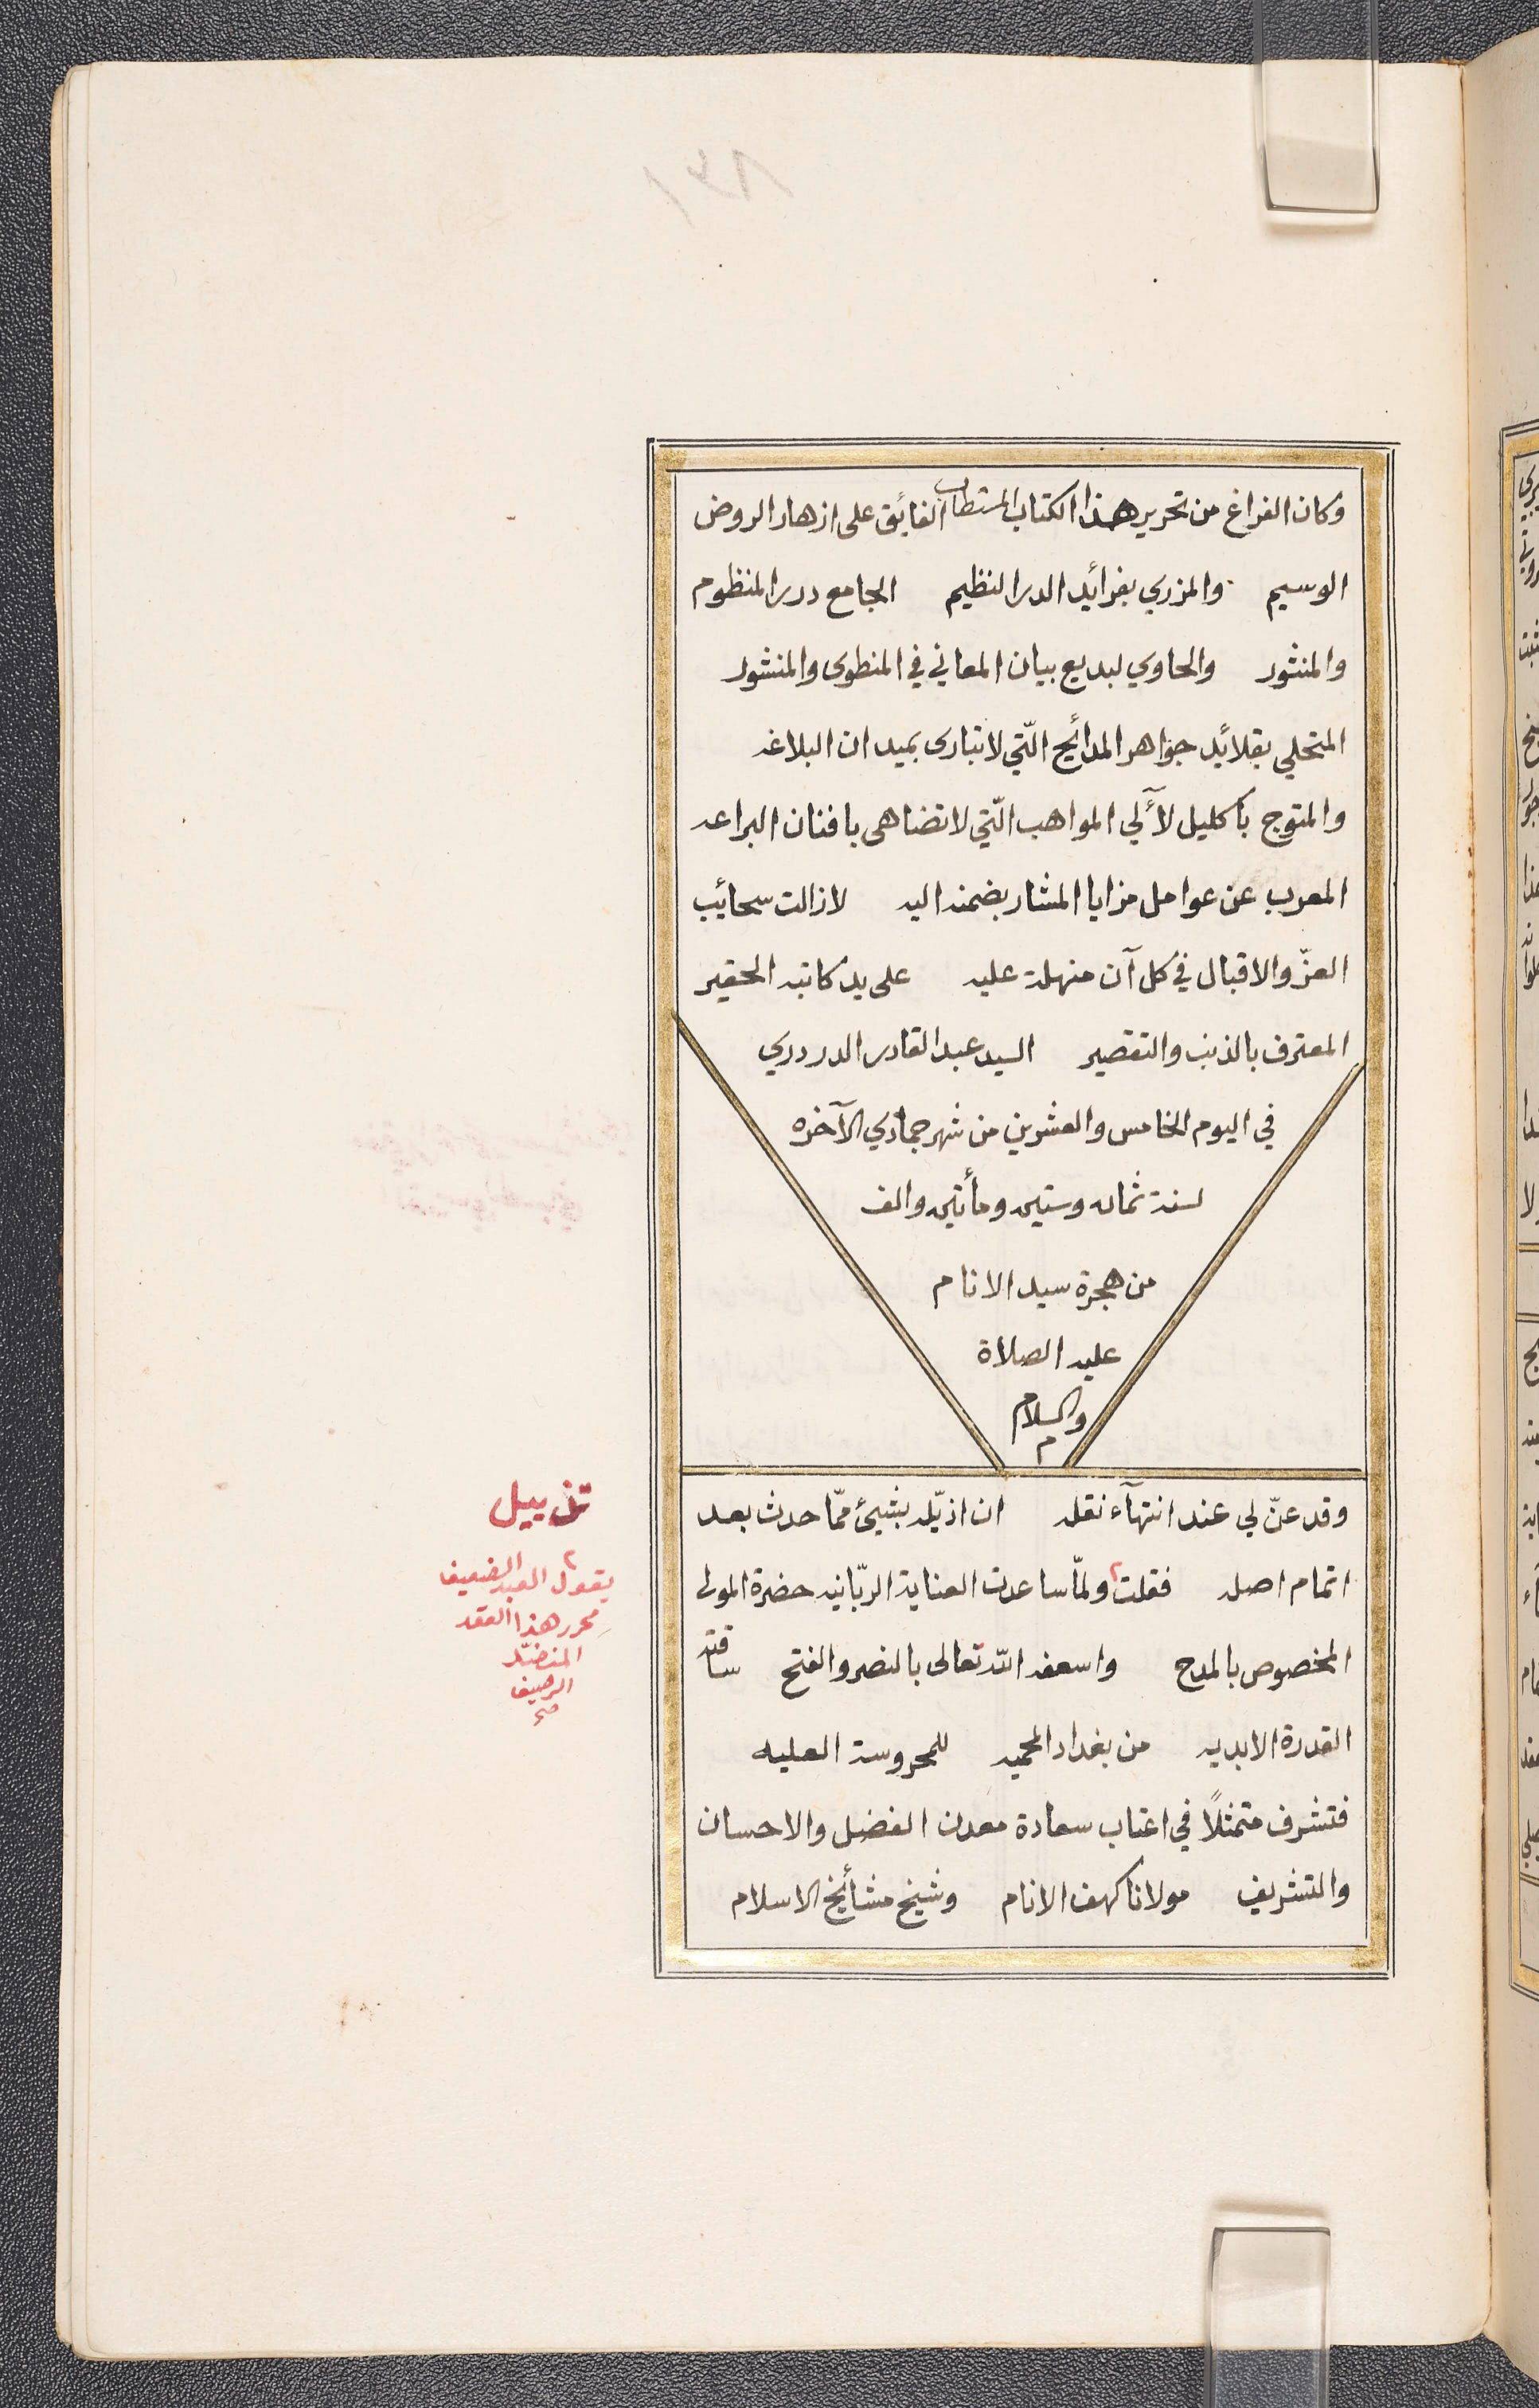 وكان الفراغ من تحرير هذا الكتاب المستطاب الفائق على ازهار الروض
الوسيم والمزري بفرائد الدر النظيم الجامع درر المنظوم
والمنثور والحاوي لبديع بيان المعاني في المنطوى والمنشور
المتحلي بقلائد جواهر المدائح الّتي لا تبارى بميدان البلاغه
والمتوج باكليل لآلي المواهب الّتي لا تضاهى بافنان البراعه
المعرب عن عوامل مزايا المشار بضمنه اليه لا زالت سحائب
العزّ والاقبال في كل آن منهلة عليه على يد كاتبه الحقير
المعترف بالذنب والتقصير السيد عبد القادر الدردري
في اليوم الخامس والعشرين من شهر جمادي الآخره
لسنة ثمان وستين ومأتين والف
من هجرة سيد الانام
عليه الصلاة
والسلام
م
وقد عنّ لي عند انتهآء نقله ان اذيّله بشيئ ممّا حدث بعد
اتمام اصله فقلت ولمّا ساعدت العناية الربّانيه حضرة المولى
المخصوص بالمدح واسعفه الله تعالى بالنصر والفتح ساقته
القدرة الابديه من بغداد المحميه للمحروسة العليه
فتشرف متمثلًا في اعتاب سعادة معدن الفضل والاحسان
والتشريف مولانا كهف الانام وشيخ مشائخ الاسلام
تذييل
يقول العبد الضعيف
محرر هذا العقد
المنضّد
الرصيف
صح